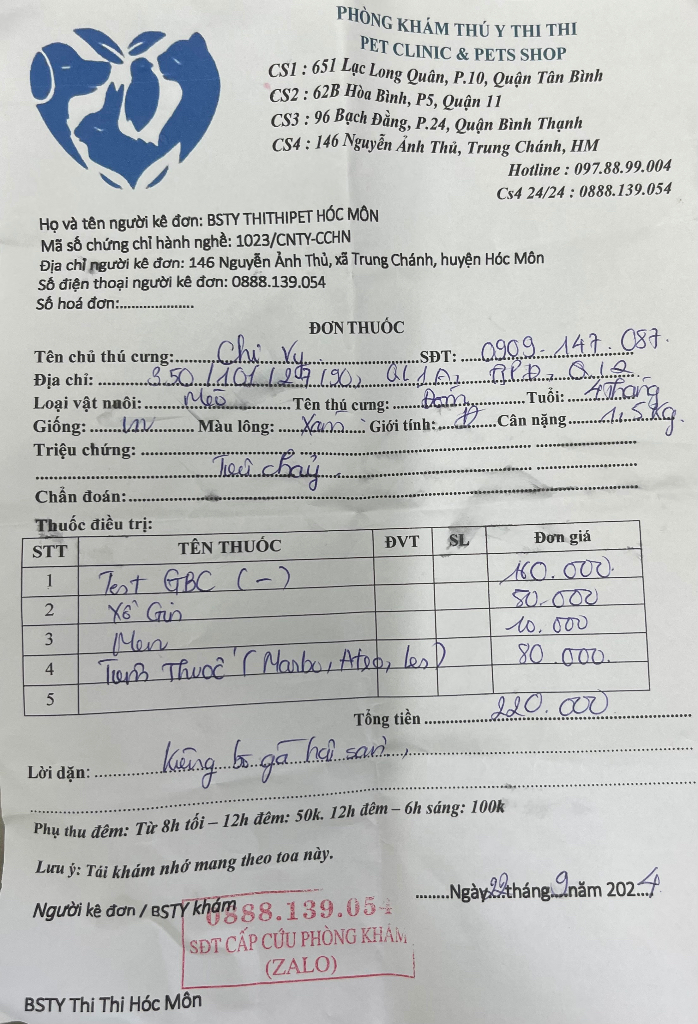 PHÒNG KHÁM THÚ Y THI THI
PET CLINIC & PETS SHOP
CS1 : 651 Lạc Long Quân, P.10, Quận Tân Bình
CS2 : 62B Hòa Bình, P5, Quận 11
CS3 : 96 Bạch Đằng, P.24, Quận Bình Thạnh
CS4 : 146 Nguyễn Ảnh Thủ, Trung Chánh, HM
Hotline : 097.88.99.004
Cs4 24/24 : 0888.139.054
Họ và tên người kê đơn: BSTY THITHIPET HÓC MÔN
Mã số chứng chỉ hành nghề: 1023/CNTY-CCHN
Địa chỉ người kê đơn: 146 Nguyễn Ảnh Thủ, xã Trung Chánh, huyện Hóc Môn
Số điện thoại người kê đơn: 0888.139.054
Số hoá đơn:....................
ĐƠN THUỐC
Tên chủ thú cưng: Chị Vy SĐT: 0909.147.087.
Địa chỉ: 350/101/29/90, QL1A, Q12
Loại vật nuôi: Mèo Tên thú cưng: Đốm Tuổi: 4 Tháng
Giống: ln Màu lông: Xám Giới tính: Đ Cân nặng 1,5 Kg.
Triệu chứng:
Tiêu chảy
Chẩn đoán:
Thuốc điều trị:
STT TÊN THUỐC ĐVT SL Đơn giá
1 Test GBC (-) 160.000
2 Xổ Giun 50.000
3 Men 10.000
4 Tiêm Thuốc (Marbo, Atro, ) 80.000.
5
Tổng tiền 220.000
Lời dặn: Kiêng bò gà hải sản,
Phụ thu đêm: Từ 8h tối – 12h đêm: 50k. 12h đêm – 6h sáng: 100k
Lưu ý: Tái khám nhớ mang theo toa này.
........Ngày 22 tháng 9 năm 2024
Người kê đơn / BSTY khám
0888.139.054
SĐT CẤP CỨU PHÒNG KHÁM
(ZALO)
BSTY Thi Thi Hóc Môn